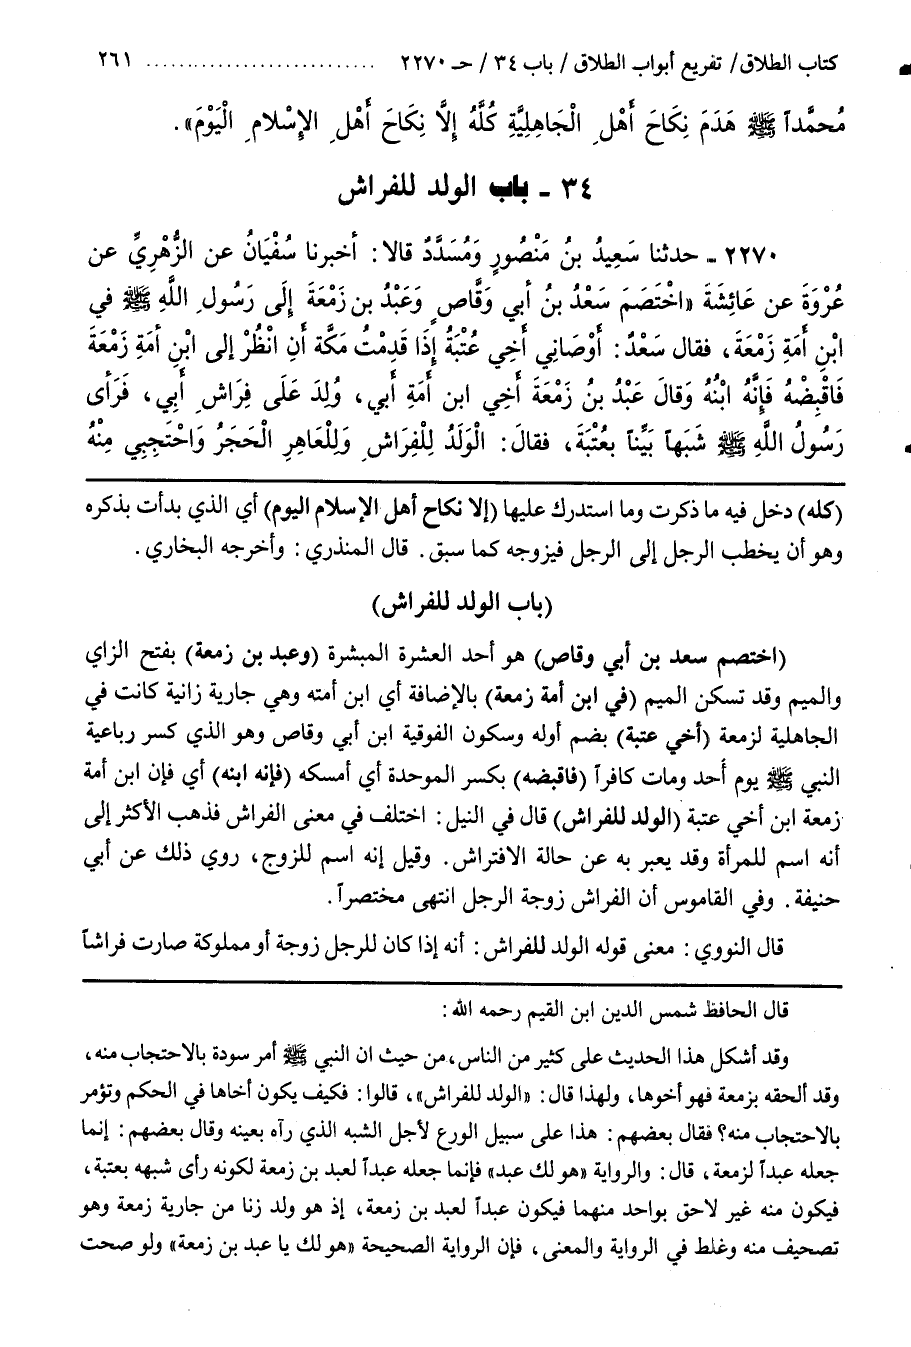 كتاب الطلاق/ تفريع أبواب الطلاق/ باب ٣٤/ حـ ٢٢٧٠ ............................ ٢٦١
مُحمَّداً ﷺ هَدَمَ نِكَاحَ أَهْلِ الْجَاهِلِيَّةِ كُلَّهُ إِلَّا نِكَاحَ أَهْلِ الإِسْلامِ الْيَوْمَ».
٣٤ ـ باب الولد للفراش
٢٢٧٠ ـ حدثنا سَعِيدُ بنُ مَنْصُورٍ وَمُسَدَّدٌ قالا: أخبرنا سُفْيَانُ عن الزُّهْرِيِّ عن
عُرْوَةَ عن عَائِشَةَ «اخْتَصَمَ سَعْدُ بنُ أبي وَقَّاصٍ وَعَبْدُ بن زَمْعَةَ إِلَى رَسُولِ اللَّهِ ﷺ في
ابْنِ أَمَةِ زَمْعَةَ، فقال سَعْدٌ: أَوْصَانِي أَخِي عُتْبَةُ إِذَا قَدِمْتُ مَكَّةَ أَنِ انْظُرْ إلى ابْنِ أَمَةِ زَمْعَةَ
فَاقْبِضْهُ فَإِنَّهُ ابْنُهُ وَقالَ عَبْدُ بنُ زَمْعَةَ أَخِي ابن أَمَةِ أَبي، وُلِدَ عَلَى فِرَاشِ أَبِي، فَرَأى
رَسُولُ اللَّهِ ﷺ شَبَهاً بَيِّناً بعُتْبَةَ، فقالَ: الْوَلَدُ لِلْفِرَاشِ وَلِلْعَاهِرِ الْحَجَرُ وَاحْتَجِبِي مِنْهُ
(كله) دخل فيه ما ذكرت وما استدرك عليها (إلا نكاح أهل الإسلام اليوم) أي الذي بدأت بذكره
وهو أن يخطب الرجل إلى الرجل فيزوجه كما سبق. قال المنذري: وأخرجه البخاري.
(باب الولد للفراش)
(اختصم سعد بن أبي وقاص) هو أحد العشرة المبشرة (وعبد بن زمعة) بفتح الزاي
والميم وقد تسكن الميم (في ابن أمة زمعة) بالإضافة أي ابن أمته وهي جارية زانية كانت في
الجاهلية لزمعة (أخي عتبة) بضم أوله وسكون الفوقية ابن أبي وقاص وهو الذي كسر رباعية
النبي ﷺ يوم أُحد ومات كافراً (فاقبضه) بكسر الموحدة أي أمسكه (فإنه ابنه) أي فإن ابن أمة
زمعة ابن أخي عتبة (الولد للفراش) قال في النيل: اختلف في معنى الفراش فذهب الأكثر إلى
أنه اسم للمرأة وقد يعبر به عن حالة الافتراش. وقيل إنه اسم للزوج، روي ذلك عن أبي
حنيفة. وفي القاموس أن الفراش زوجة الرجل انتهى مختصراً.
قال النووي: معنى قوله الولد للفراش: أنه إذا كان للرجل زوجة أو مملوكة صارت فراشاً
قال الحافظ شمس الدين ابن القيم رحمه الله:
وقد أشكل هذا الحديث على كثير من الناس، من حيث ان النبي ﷺ أمر سودة بالاحتجاب منه،
وقد ألحقه بزمعة فهو أخوها، ولهذا قال: «الولد للفراش»، قالوا: فكيف يكون أخاها في الحكم وتؤمر
بالاحتجاب منه؟ فقال بعضهم: هذا على سبيل الورع لأجل الشبه الذي رآه بعينه وقال بعضهم: إنما
جعله عبداً لزمعة، قال: والرواية «هو لك عبد» فإنما جعله عبداً لعبد بن زمعة لكونه رأى شبهه بعتبة،
فيكون منه غير لاحق بواحد منهما فيكون عبداً لعبد بن زمعة، إذ هو ولد زنا من جارية زمعة وهو
تصحيف منه وغلط في الرواية والمعنى، فإن الرواية الصحيحة «هو لك يا عبد بن زمعة» ولو صحت